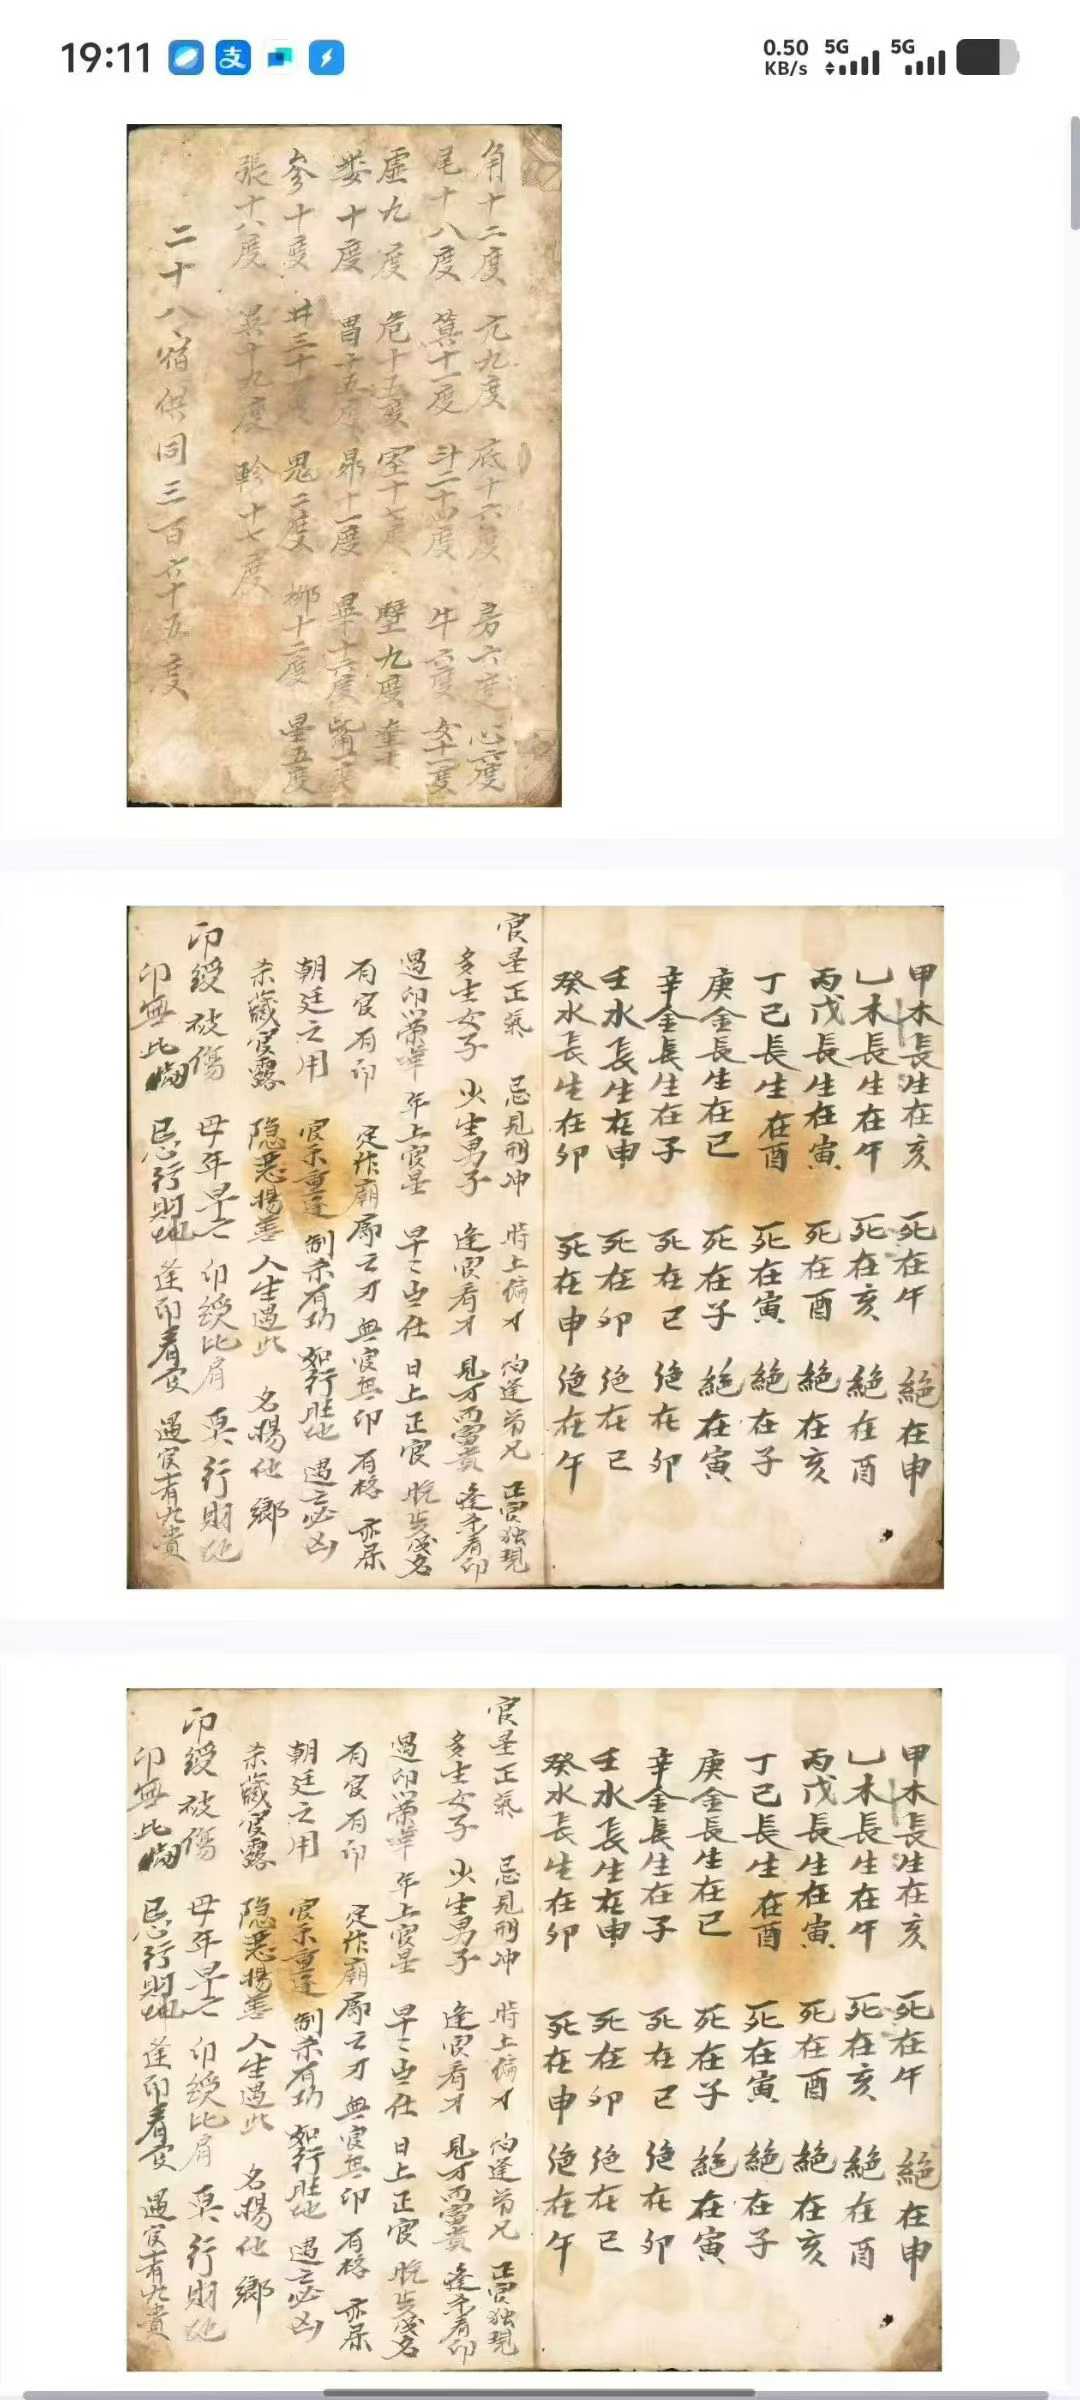 19:11
支
0.50 KB/s
5G
5G
角十二度 亢九度 底十六度 房六度 心六度
尾十八度 箕十一度 斗二十四度 牛六度 女十一度
虛九度 危十五度 室十七度 壁九度 奎十
婁十度 胃十五度 昴十一度 畢十六度 觜一度
參十度 井三十度 鬼二度 柳十二度 星五度
張十八度 翼十九度 軫十七度
二十八宿供同三百六十五度
甲木長生在亥 死在午 絕在申
乙木長生在午 死在亥 絕在酉
丙戊長生在寅 死在酉 絕在亥
丁己長生在酉 死在寅 絕在子
庚金長生在巳 死在子 絕在寅
辛金長生在子 死在巳 绝在卯
壬水長生在申 死在卯 绝在巳
癸水長生在卯 死在申 绝在午
官星正氣 忌見刑冲 時上偏才 怕逢弟兄 正官独現
多生女子 少生男子 逢官看才 見才而富貴 逢杀看印
遇印榮華 年上官星 早〻出仕 日上正官 晚年成名
有官有印 定作廟廊之才 無官無印 有格 亦采
朝廷之用 官杀重逢 制杀有功 如行旺地 遇之必凶
杀藏官露 隐恶揚善 人生遇此 名揚他鄉
印綬被傷 母年早亡 印綬比肩 莫行財地
印無比 忌行財地 逢印看官 遇官有九貴
甲木長生在亥 死在午 絕在申
乙木長生在午 死在亥 絕在酉
丙戊長生在寅 死在酉 絕在亥
丁己長生在酉 死在寅 絕在子
庚金長生在巳 死在子 絕在寅
辛金長生在子 死在巳 绝在卯
壬水長生在申 死在卯 绝在巳
癸水長生在卯 死在申 绝在午
官星正氣 忌見刑冲 時上偏才 怕逢弟兄 正官独現
多生女子 少生男子 逢官看才 見才而富貴 逢杀看印
遇印榮華 年上官星 早〻出仕 日上正官 晚年成名
有官有印 定作廟廊之才 無官無印 有格 亦采
朝廷之用 官杀重逢 制杀有功 如行旺地 遇之必凶
杀藏官露 隐恶揚善 人生遇此 名揚他鄉
印綬被傷 母年早亡 印綬比肩 莫行財地
印無比 忌行財地 逢印看官 遇官有九貴